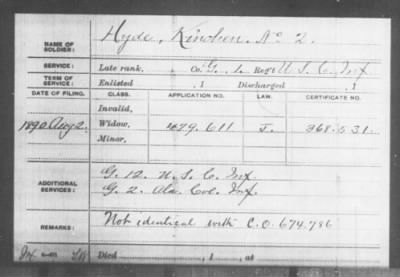 NAME OF SOLDIER: Hyde, Kinchen. No 2.
SERVICE: Late rank, Co. G. Reg't U S C Inf
TERM OF SERVICE: Enlisted , 1 Discharged , 1
DATE OF FILING. CLASS. APPLICATION NO. LAW. CERTIFICATE NO.
Invalid,
1890 Aug 2. Widow, 479.611 J. 368.531.
Minor,
ADDITIONAL SERVICES: G. 12. U. S. C. Inf.
G. 2. Ala Col. Inf.
REMARKS: Not identical with C.O. 674.786
Died , 1 , at